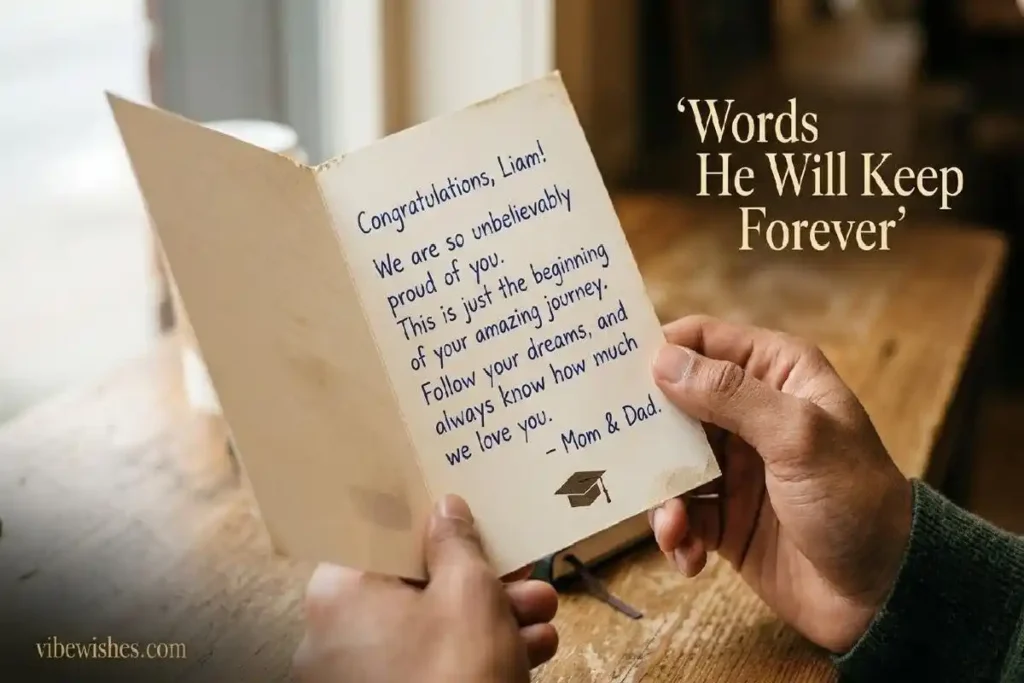 Congratulations, Liam!
We are so unbelievably
proud of you.
This is just the beginning
of your amazing journey.
Follow your dreams, and
always know how much
we love you.
– Mom & Dad.
‘Words
He Will Keep
Forever’
vibewishes.com